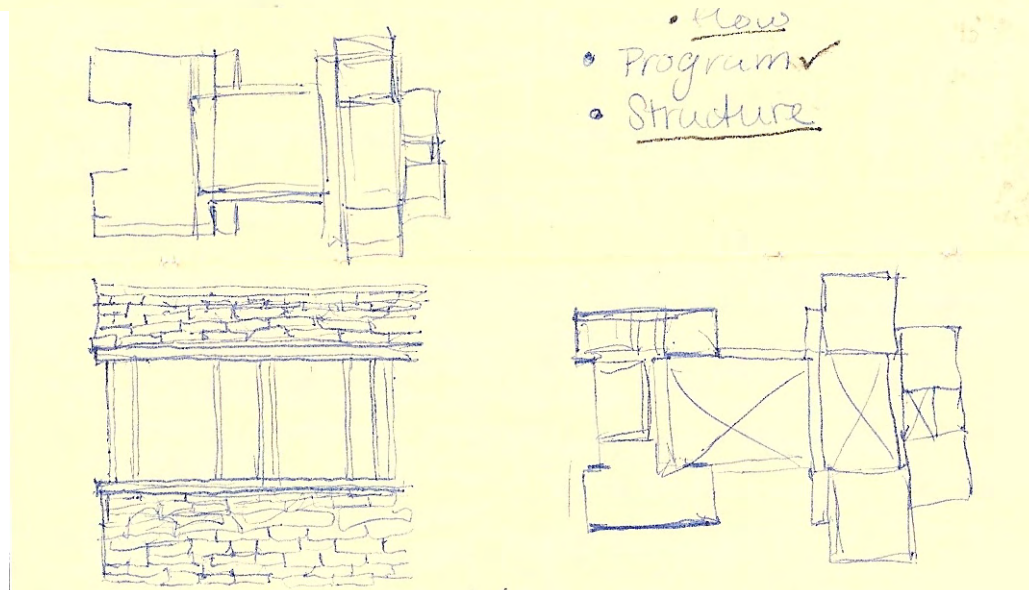 • Flow
• Program✓
• Structure